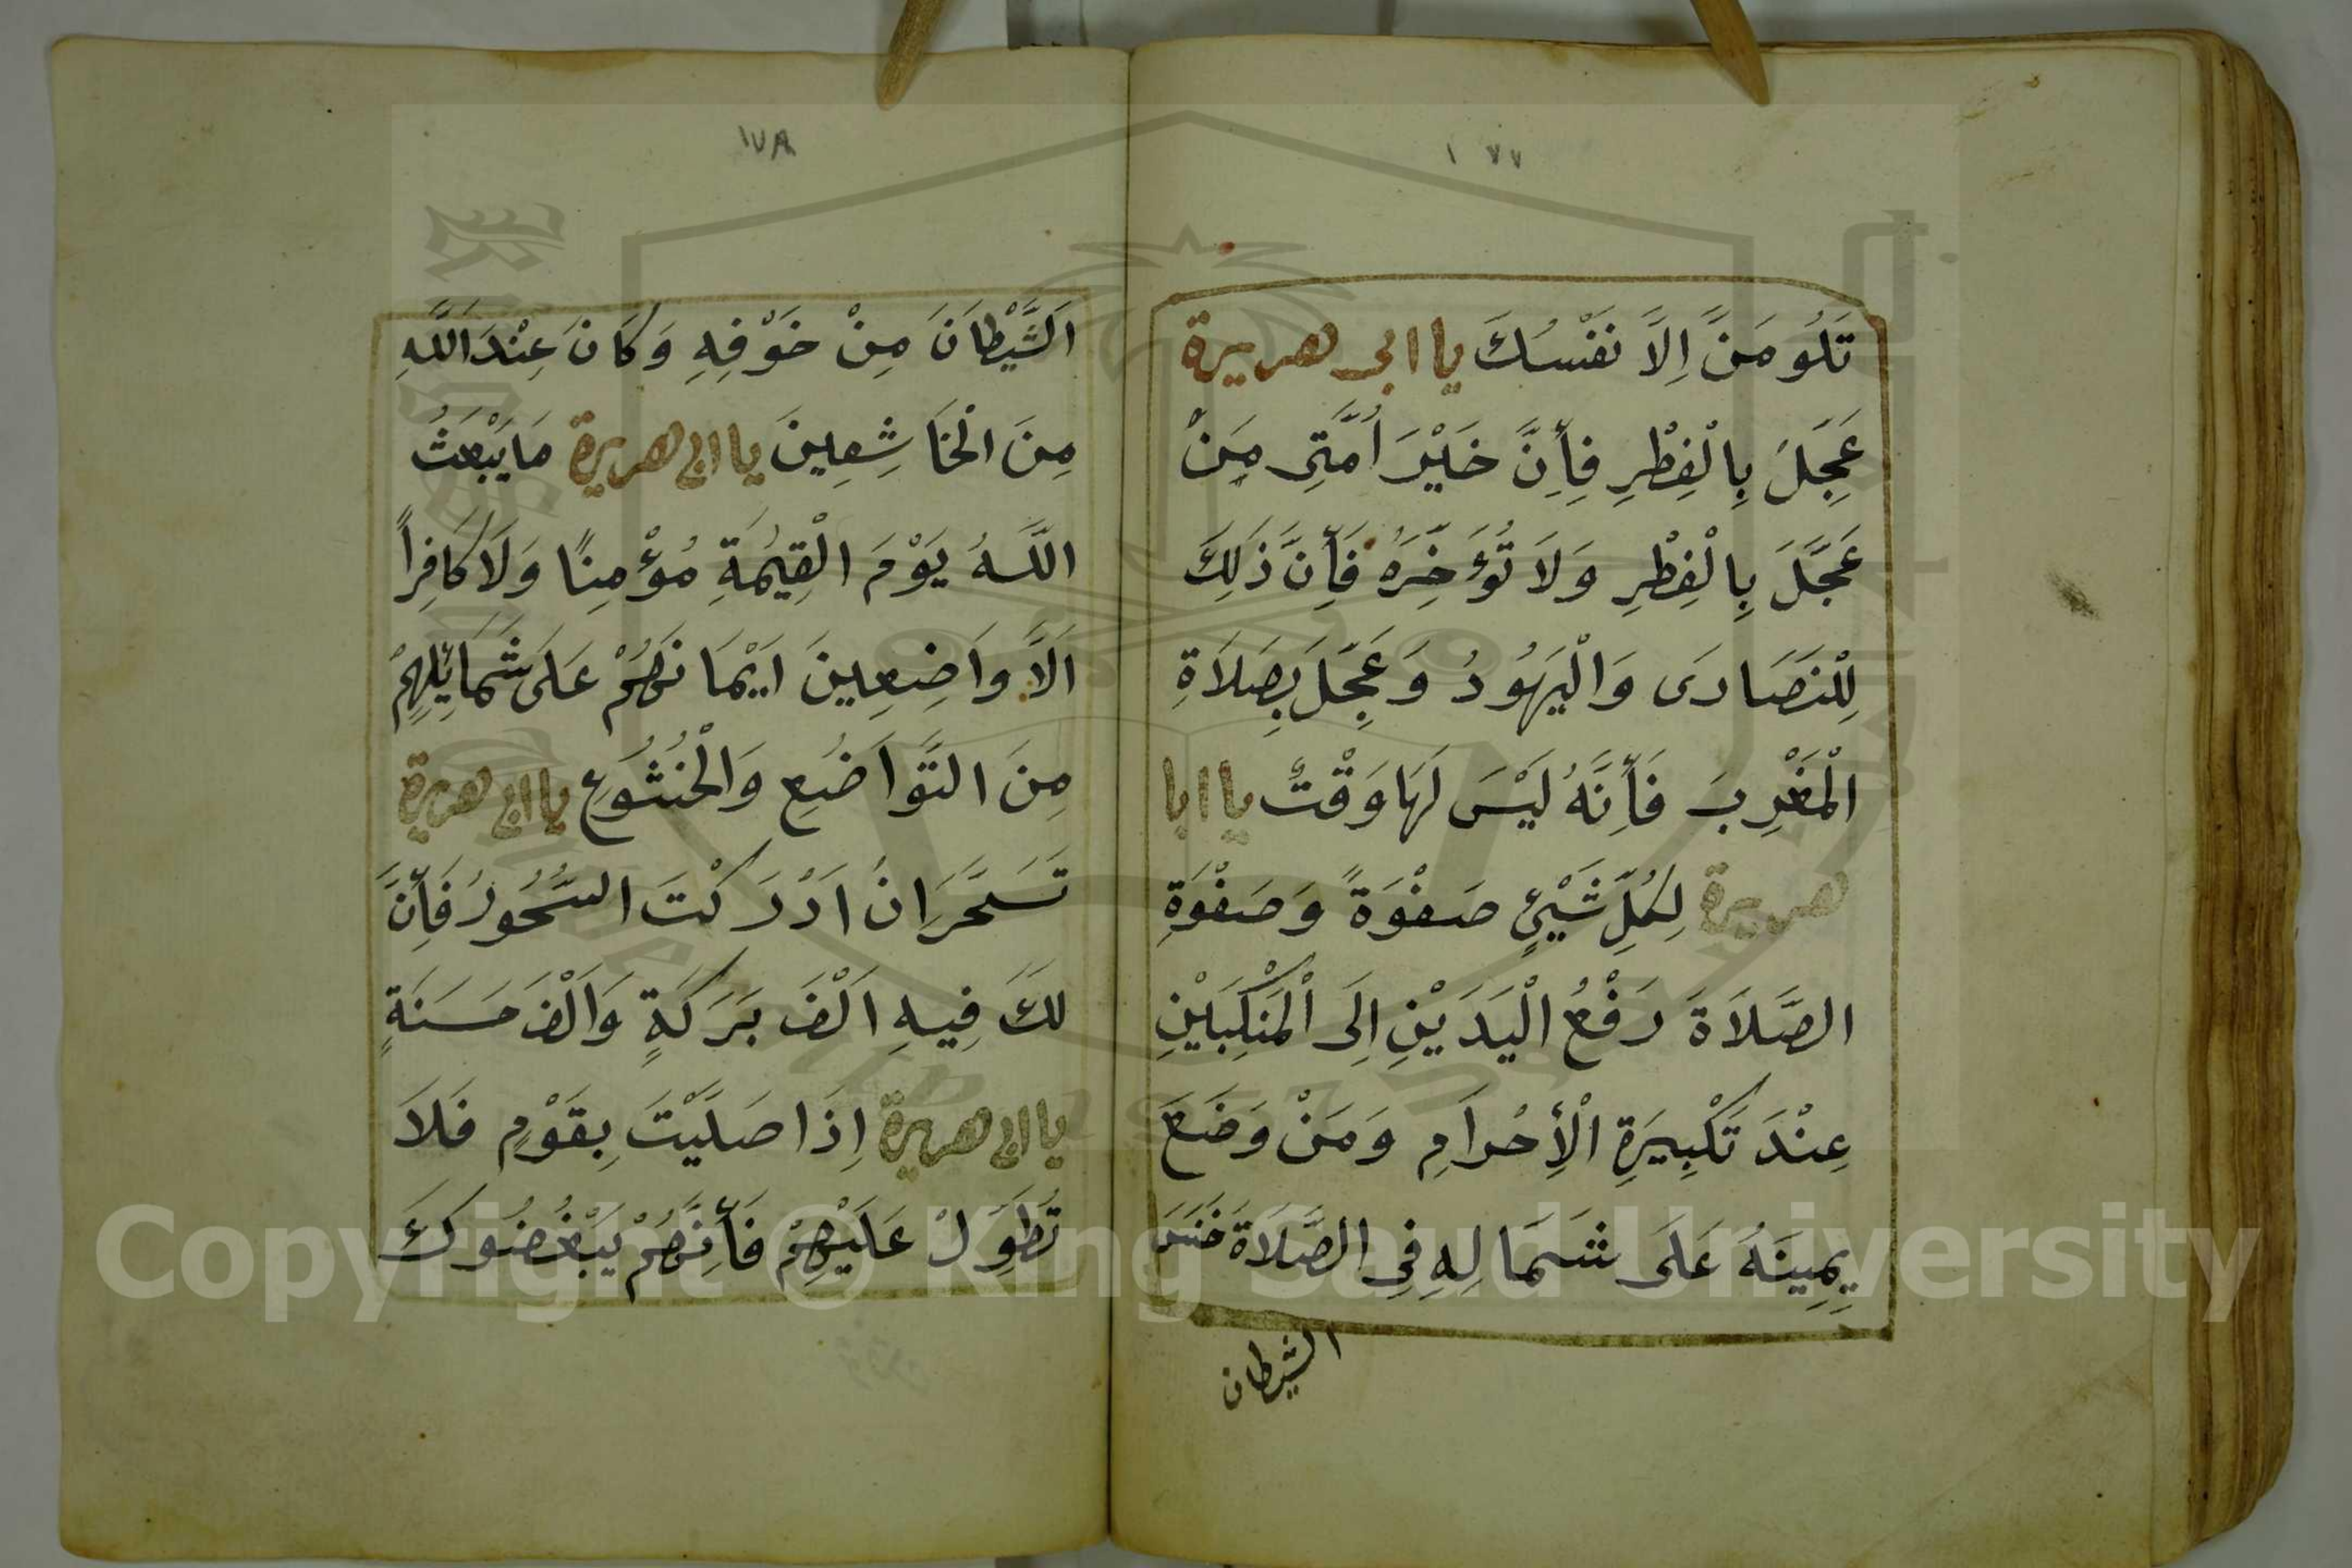 ١٧٧
تَلُومَنَّ اِلاَّ نَفْسُكَ يا ابى هريرة
عَجِّلْ بِالْفِطْرِ فِأِنَّ خَيْرَ اُمَّتِى مَِنْ
عَجَّلَ بِالْفِطْرِ وَلَا تُؤَخِّرَهُ فَأِنَّ ذَلِكَ
لِلْنَصَارَى وَالْيَهُودُ وَعَجِّلَ بِصَلَاةِ
الْمَغْرِبَ فَأِنَّهُ لَيْسَ لَهَا وَقْتٌ يا ابا
هريرة لِكُلِّ شَيْئٍ صَفْوَةً وَصَفْوَةِ
الصَّلَاةَ رَفْعُ الْيَدَيْنِ اِلَى الْمَنْكِبَيْنِ
عِنْدَ تَكْبِيرَةِ الْأِحْرَامِ وَمَنْ وَضَعَ
يَمِينَهُ عَلَى شَمَالِهِ فِى الصَّلَاةَ خَنَسَ
الشيطان
١٧٨
اَلشَّيْطَانَ مِنْ خَوْفِهِ وَكَانَ عِنْدَ اللَّهِ
مِنَ الْخَاشِعِينَ يا ابى هريرة مَا يَبْعَثُ
اللَّهُ يَوْمَ الْقِيٰمَةِ مُؤْمِنًا وَلَا كَافِراً
اَلاَّ وَاَضِعِينَ اَيْمَانَهُمْ عَلَى شَمَائِلِهِمْ
مِنَ التَّوَاضُعِ وَالْخُشُوعِ يا ابى هريرة
تَسَحَّرَ اِنْ اَدْرَكْتَ السُّحُورُ فَأِنَّ
لَكَ فِيهِ اَلْفَ بَرَكَةٍ وَاَلْفَ حَسَنَةٍ
يا ابى هريرة اِذَا صَلَّيْتَ بِقَوْمٍ فَلَا
تُطَوِلْ عَلَيْهِمْ فَأِنَّهُمْ يَبْغُضُوكَ
Copyright © King Saud University